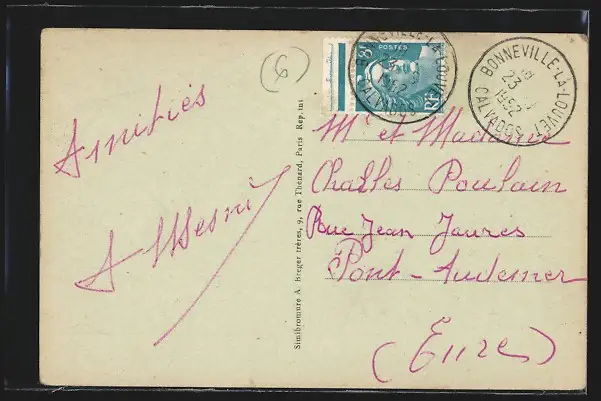 (6)
8F
POSTES
RF
BONNEVILLE-LA-LOUVET
CALVADOS
BONNEVILLE-LA-LOUVET
23
1952
CALVADOS
Amitiés
Mr et Madame
Charles Poulain
Rue Jean Jaures
Pont-Audemer
(Eure)
Simibromure A. Breger frères, 9, rue Thénard, Paris Rep. int